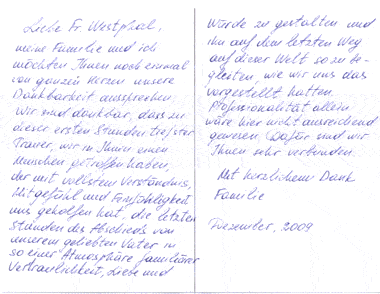 Liebe Fr. Westphal,
meine Familie und ich
möchten Ihnen noch einmal
von ganzem Herzen unsere
Dankbarkeit aussprechen.
Wir sind dankbar, dass in
dieser ersten Stunden tiefster
Trauer, wir in Ihnen einen
Menschen getroffen haben,
der mit vollstem Verständnis,
Mitgefühl und Feinfühligkeit
uns geholfen hat, die letzten
Stunden des Abschieds von
unserem geliebten Vater in
so einer Atmosphäre familiärer
Vertraulichkeit, Liebe und
Würde zu gestalten und
ihn auf dem letzten Weg
auf dieser Welt so zu be-
gleiten, wie wir uns das
vorgestellt hatten.
Professionalität allein
wäre hier nicht ausreichend
gewesen. Dafür sind wir
Ihnen sehr verbunden.
Mit herzlichem Dank
Familie
Dezember, 2009